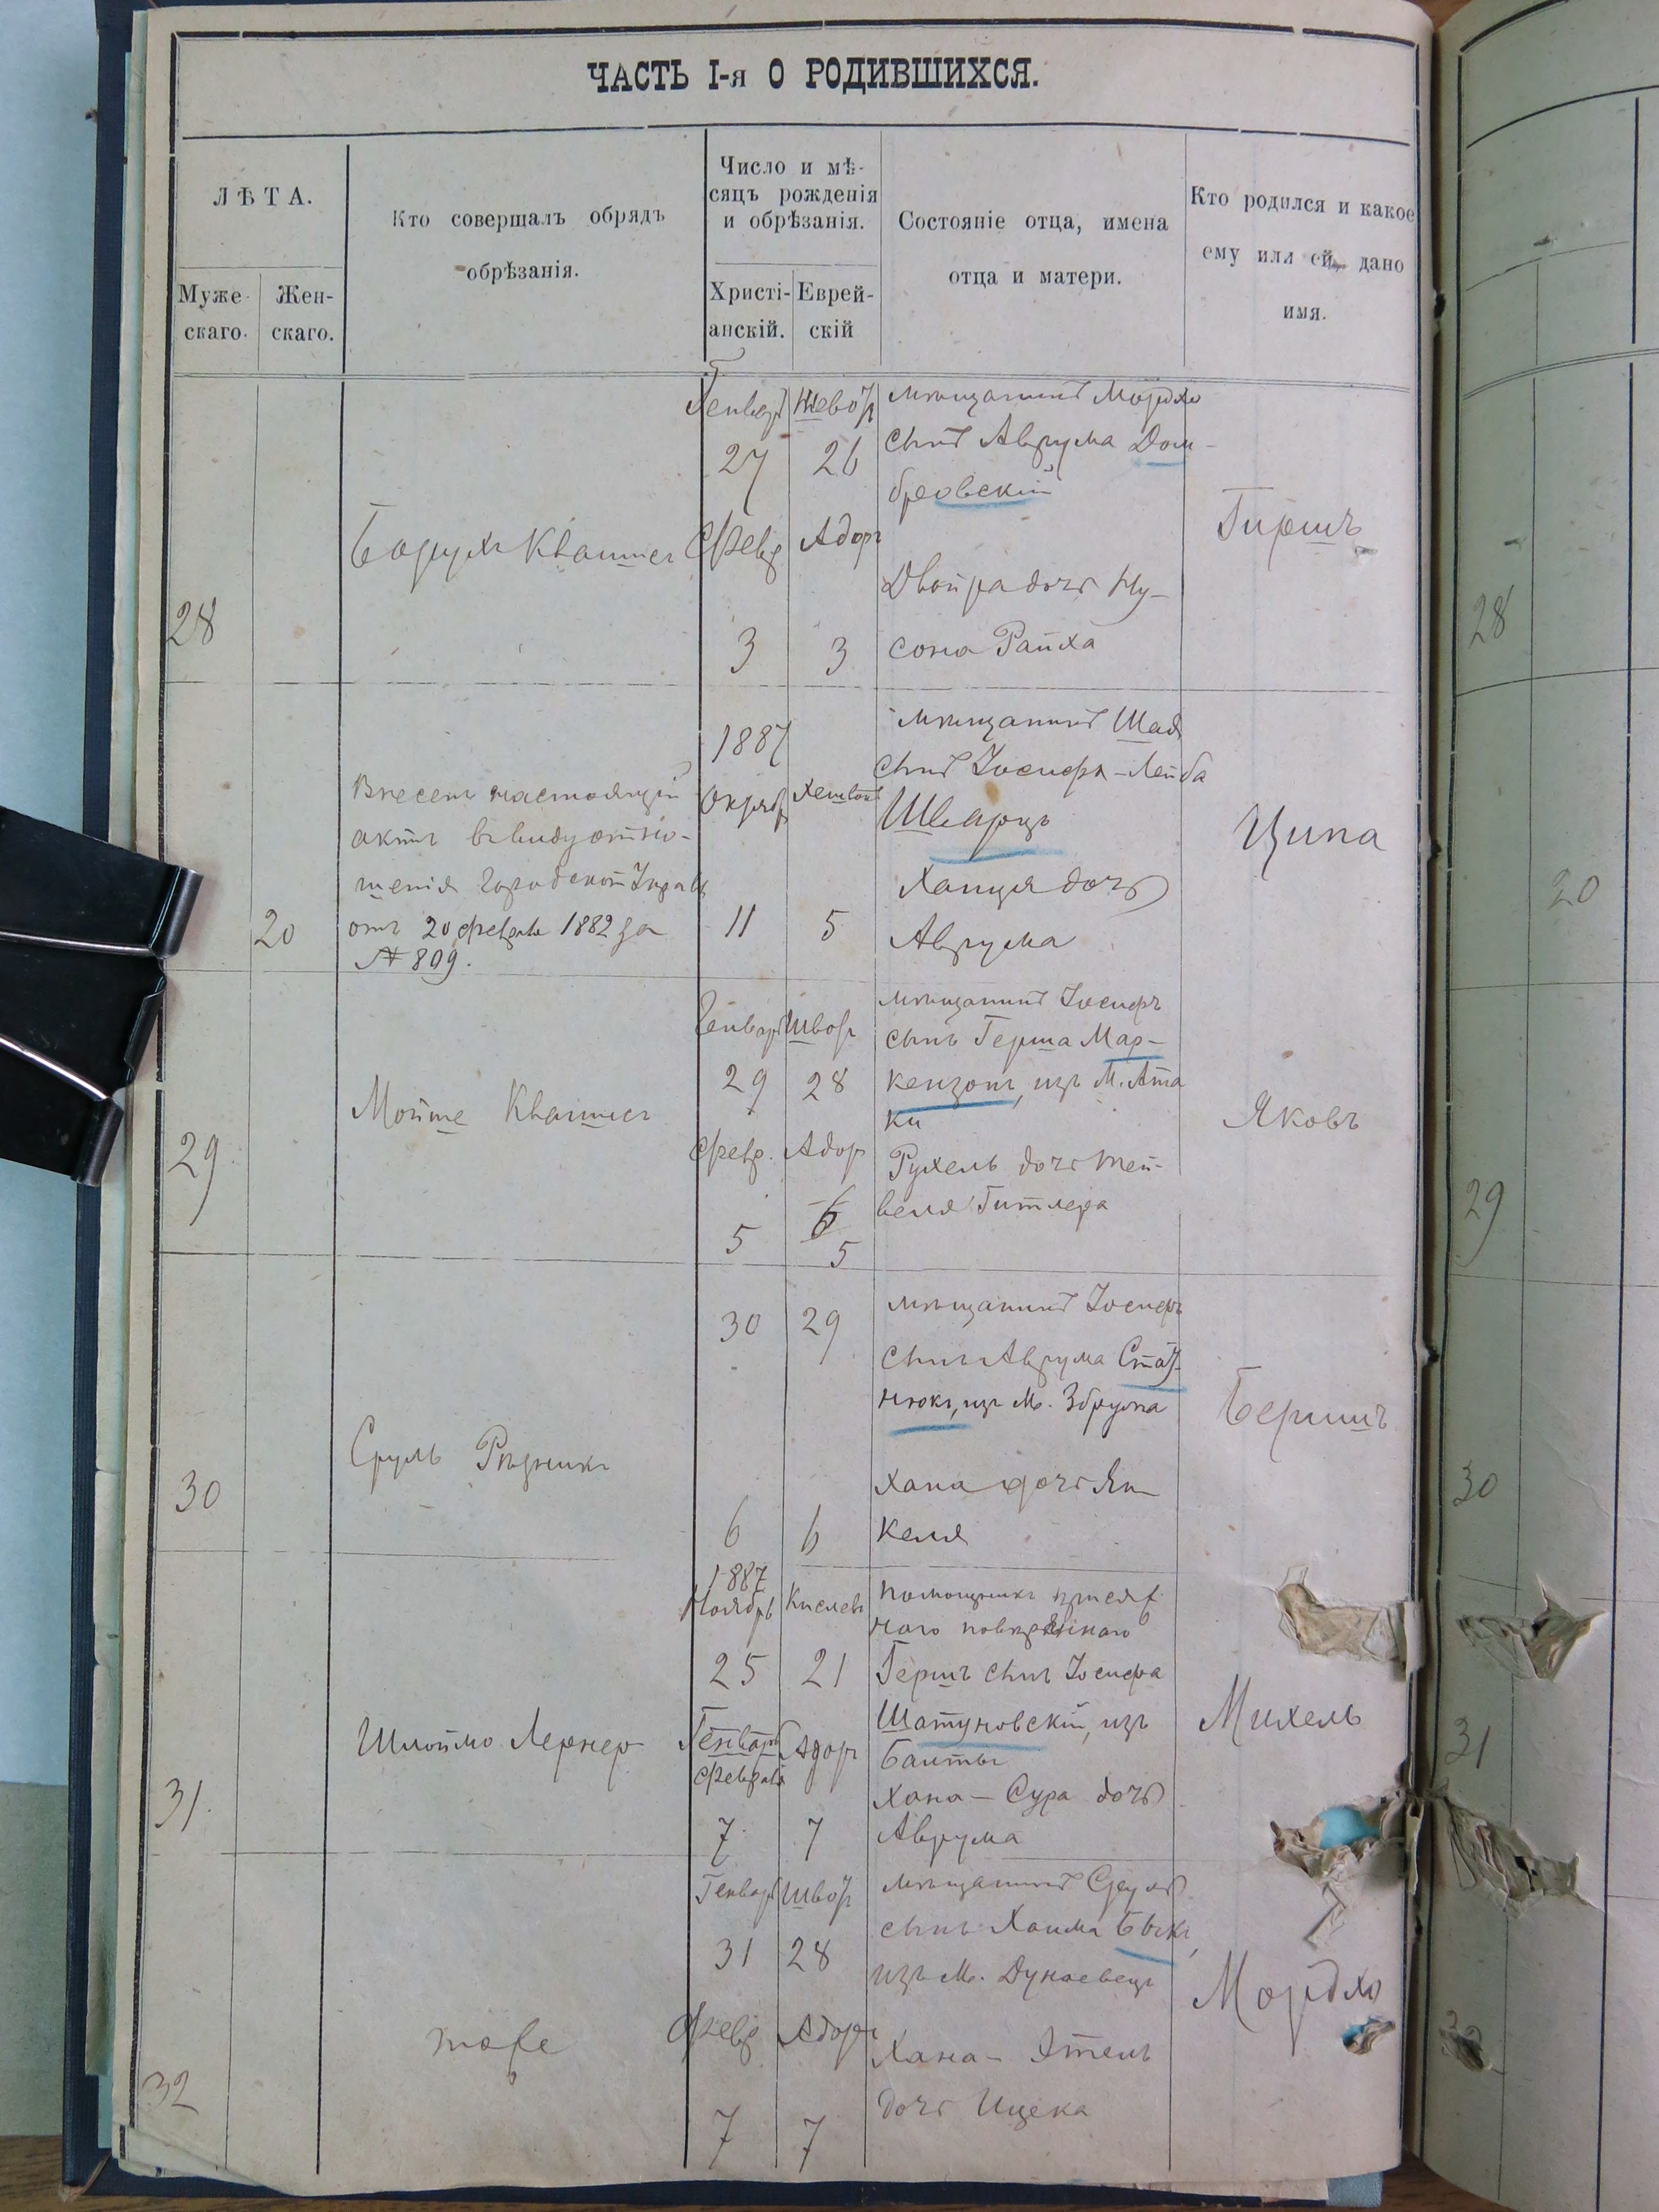 ЧАСТЬ I-я О РОДИВШИХСЯ.
ЛѢТА.
Муже-
скаго.
Жен-
скаго.
Кто совершалъ обрядъ
обрѣзанія.
Число и мѣ-
сяцъ рожденія
и обрѣзанія.
Христі-
анскій.
Еврей-
скій
Состояніе отца, имена
отца и матери.
Кто родился и какое
ему или ей дано
имя.
28
Борухъ Квашис
Генварь
27
Февр
3
26
Адоръ
3
мѣщанинъ Мордхо
сынъ Аврума Дом-
бровскій
Двойра дочь Ну-
сона Райха
Гиршъ
28
20
Внесенъ настоящій
актъ въ виду отно-
шенія Городской Управ
отъ 20 февраля 1882 за
№ 809.
1887
Октяб
11
Хешван
5
мѣщанинъ Шая
сынъ Іосифа-Лейба
Шварцъ
Ханця дочь
Аврума
Ципа
20
29
Мойше Квашис
Генварь
29
Февр.
5
Шворъ
28
Адор
6
5
мѣщанинъ Іосифъ
сынъ Герша Мар-
кензонъ, изъ М. Ата
ки
Рухель дочь
веля Гитлера
Яковъ
29
30
Сруль Рѣзникъ
30
6
29
6
мѣщанинъ Іосифъ
сынъ Аврума
нюкъ, изъ М. Збруча
Хана дочь Ян
келя
Бершъ
30
31.
Шлоймо Лернер
1887
Ноябрь
25
Генварь
Февраля
7
Кислевъ
21
Адоръ
7
Помощникъ присяж
наго повѣреннаго
Гершъ сынъ Іосифа
Шатуновскій, изъ
Балты
Хана-Сура дочь
Аврума
Михель
31
32
тоже
Генварь
31
Февр
7
Шворъ
28
Адоръ
7
мѣщанинъ Сруль
сынъ Хаима Быкъ,
изъ М. Дунаевецъ
Хана-Этель
дочь Ицека
Мордхо
32